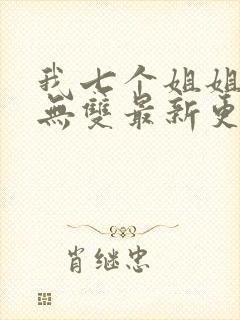 我七个姐姐
無雙最新更
肖继忠